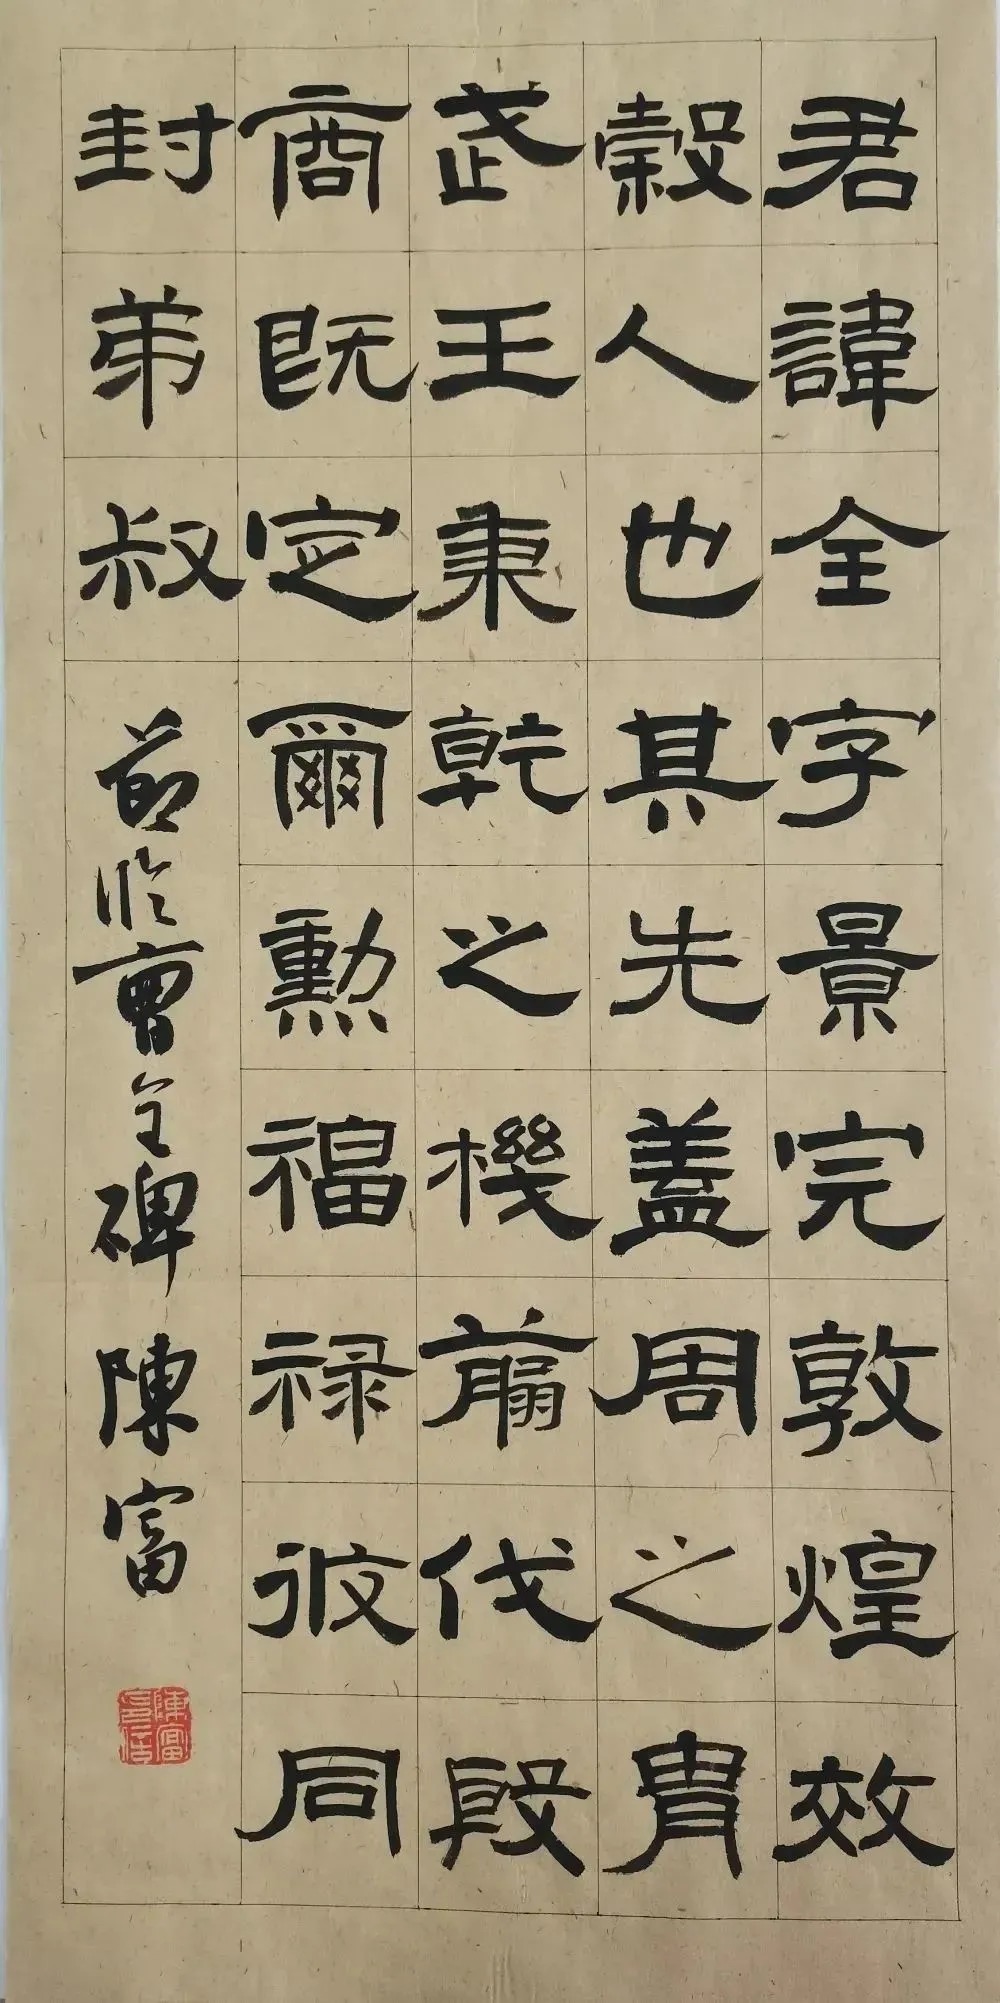 君諱全字景完敦煌效
穀人也其先蓋周之胄
武王秉乾之機翦伐殷
商既定爾勳福祿攸同
封弟叔
節臨曹全碑 陳富
陳富